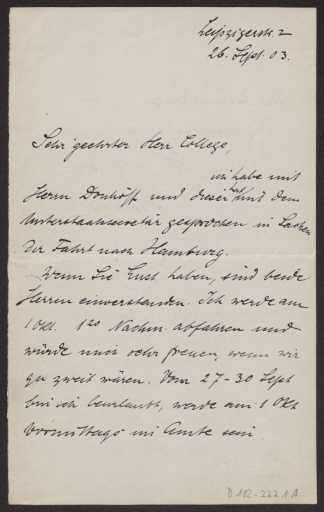 Leipzigerstr. 2
26. Sept. 03.
Sehr geehrter Herr College,
ich habe mit
Herrn Dönhoff und dieser hat mit dem
Unterstaatssecretär gesprochen in Sachen
der Fahrt nach Hamburg.
Wenn Sie Lust haben, sind beide
Herren einverstanden. Ich werde am
1 Okt. 1 20 Nachm. abfahren und
würde mich sehr freuen, wenn wir
zu zweit wären. Vom 27-30 Sept
bin ich beurlaubt, werde am 1 Okt
Vormittags im Amte sein.
D 112-222 1 A